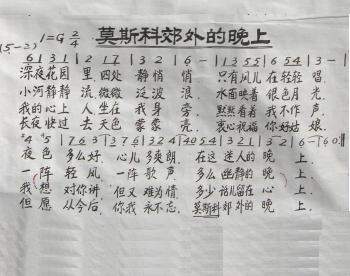 莫斯科郊外的晚上
(5-2) 1=G 2/4
6131|217|32|6-|1355|654|3-|
深夜花园里,四处静悄悄 只有风儿在轻轻唱,
小河静静流微微泛波浪, 水面映着银色月光,
我的心上人坐在我身旁 默默看着我不作声
长夜快过去天色蒙蒙亮 衷心祝福你好姑娘
夜色多么好,心儿多爽朗,在这迷人的晚上,
一阵轻风,一阵歌声,多么幽静的晚上.
我想对你讲,但又难为情 多少话儿留在心上
但愿从今后,你我永不忘,莫斯科郊外的晚上.